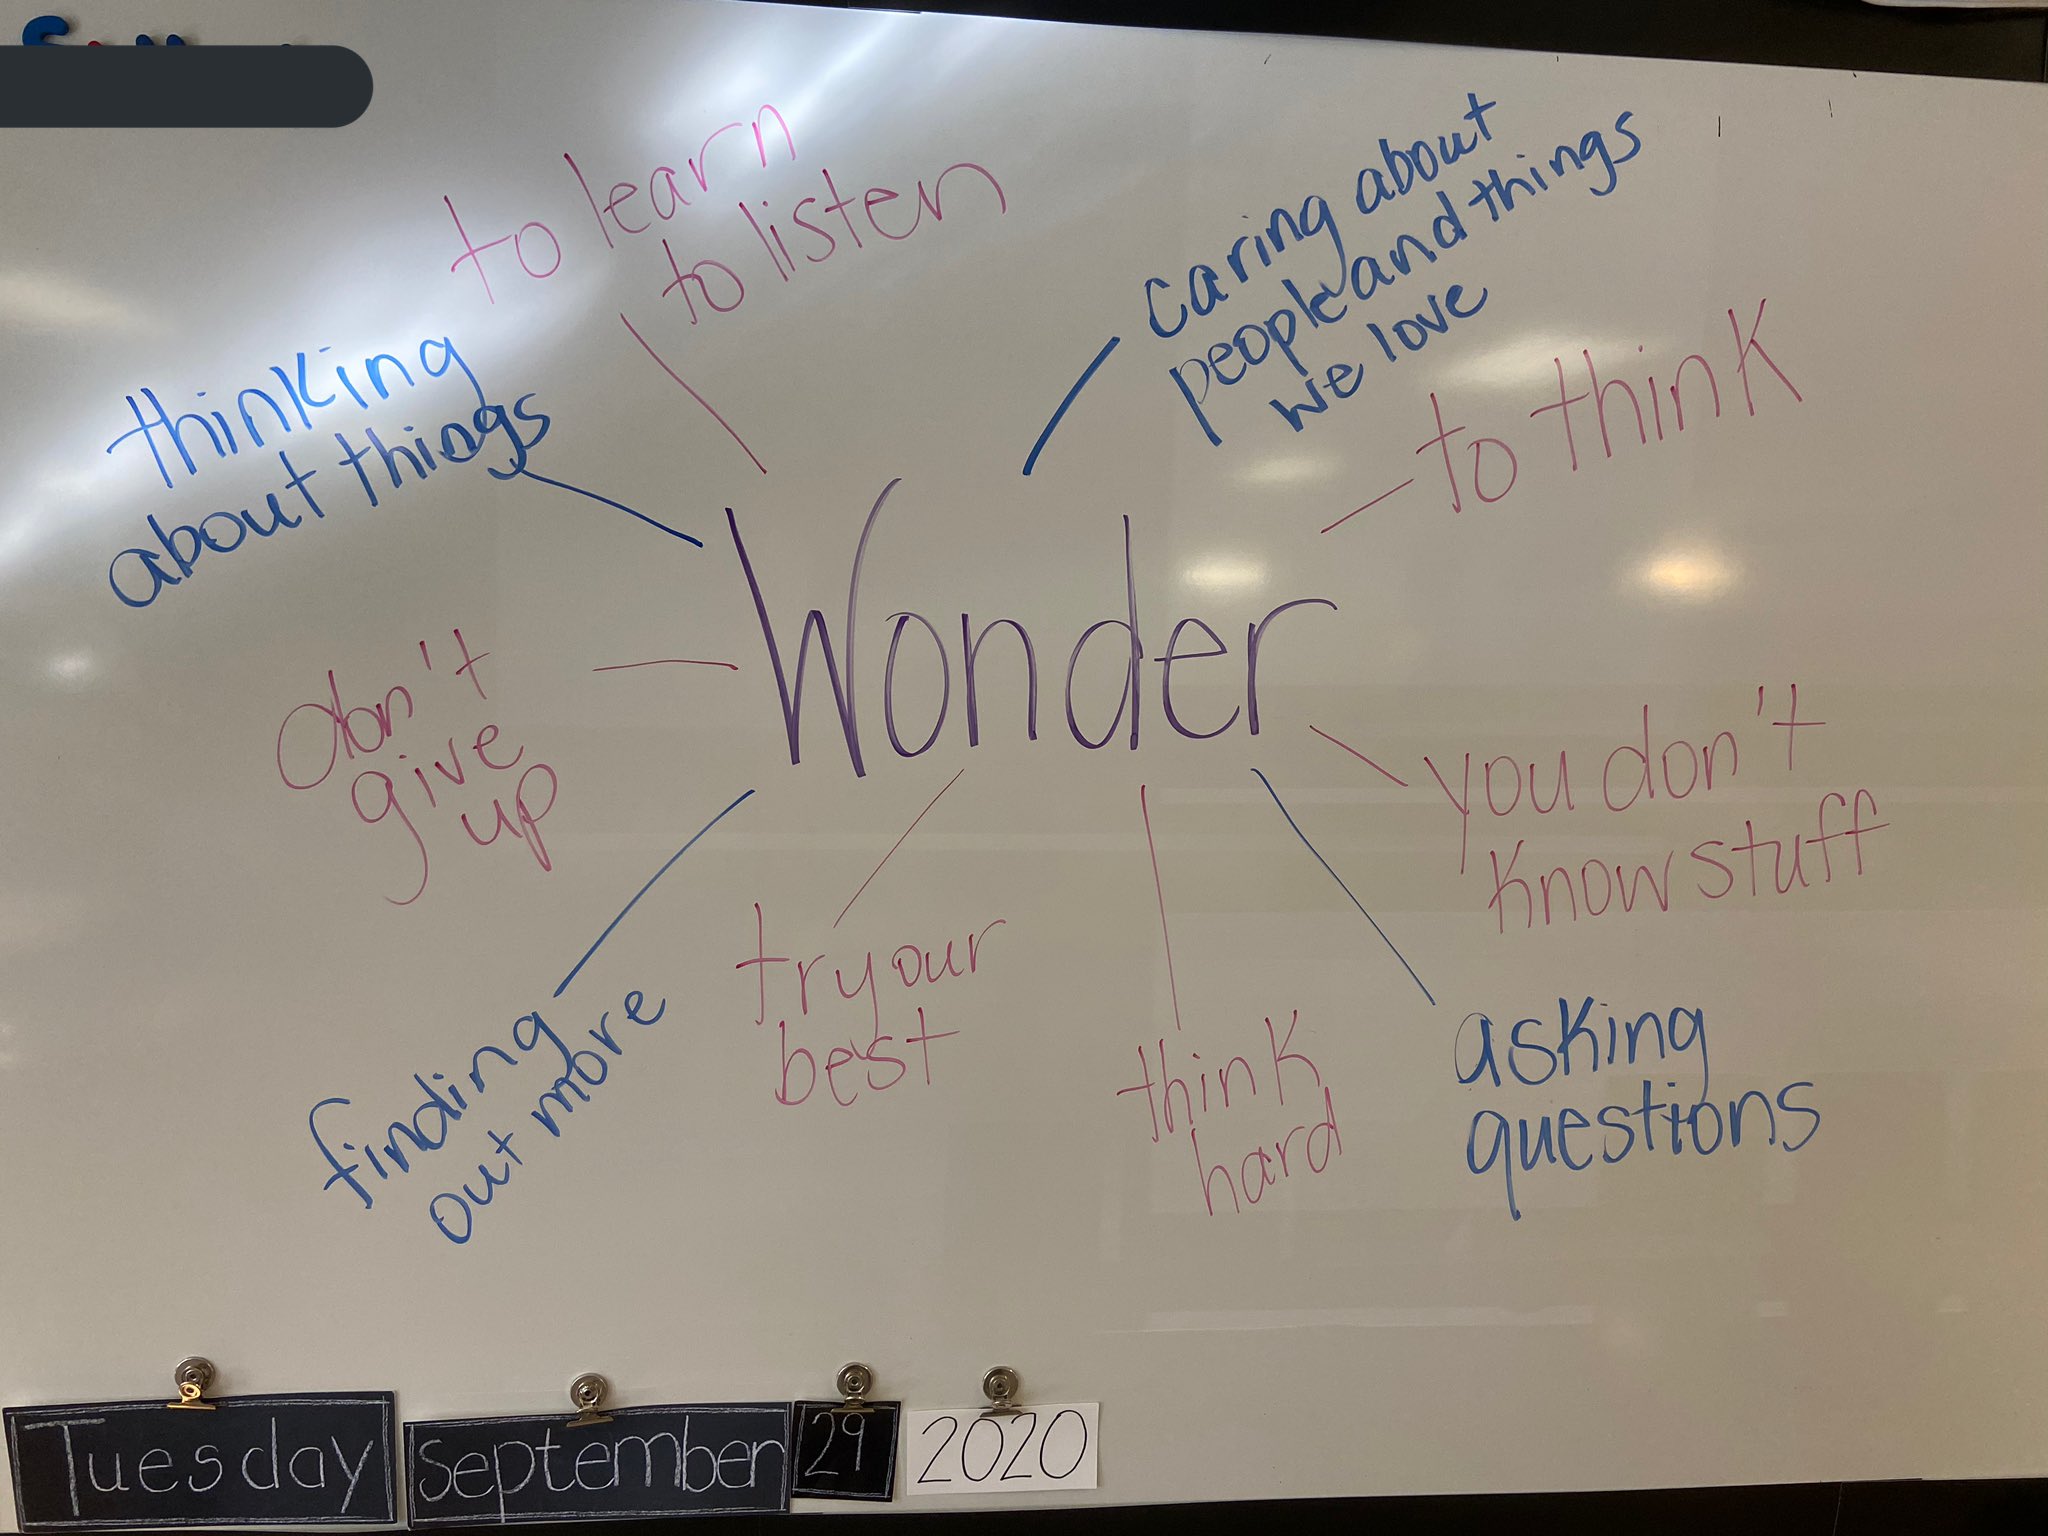 to learn
to listen
caring about
people and things
we love
thinking
about things
to think
Wonder
don't
give
up
you don't
know stuff
finding
out more
try your
best
think
hard
asking
questions
Tuesday
September
29
2020